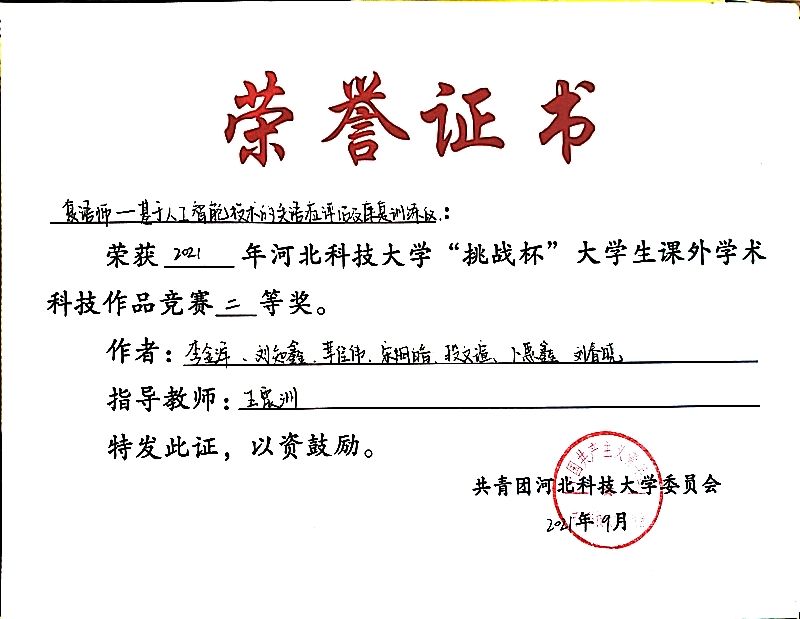 荣誉证书
复语师—基于人工智能技术的失语症评估及康复训练仪:
荣获 2021 年河北科技大学“挑战杯”大学生课外学术
科技作品竞赛 二 等奖。
作者:李金泽、刘
指导教师:王震洲
特发此证,以资鼓励。
共青团河北科技大学委员会
2021年9月